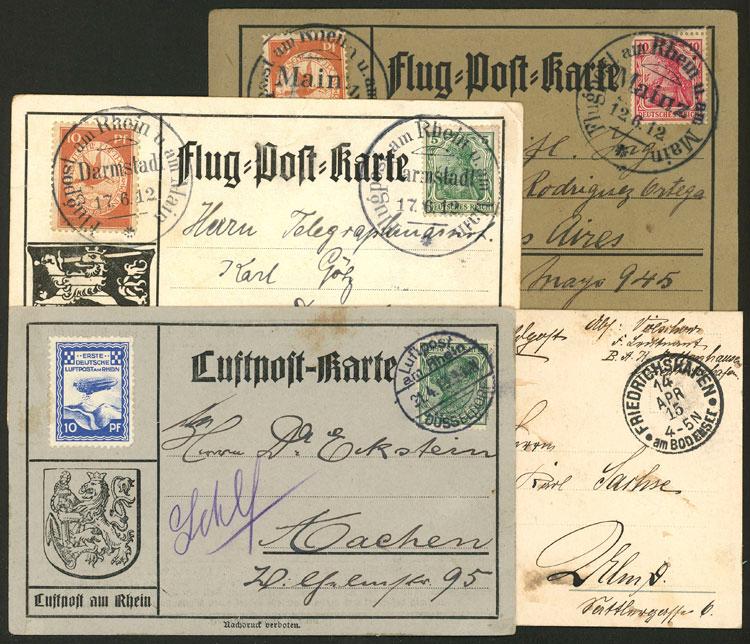 Flugpost am Rhein u. am Main
Main
10 Pf
Flug-Post-Karte
10 10
DEUTSCHES REICH
Flugpost am Rhein u. am Main
Mainz
12.6.12
Rodriguez Ortega
Aires
mayo 945
10 Pf
Flugpost am Rhein u. am Main
Darmstadt
17.6.12
Flug-Post-Karte
5
DEUTSCHES REICH
Flugpost am Rhein u. am Main
Darmstadt
17.6.12
Herrn Telegraphen
Karl Götz
ERSTE
DEUTSCHE
LUFTPOST AM RHEIN
10 PF
Luftpost-Karte
Luftpost
am Rhein
DÜSSELDORF
Herrn Dr. Eckstein
Aachen
Wilhelmstr. 95
Luftpost am Rhein
Nachdruck verboten.
Abs:
F. Leutnant
B.A.
FRIEDRICHSHAFEN
14
APR
15
4-5N
am BODENSEE
Karl Sachse
Ulm
Sattlergasse 6.